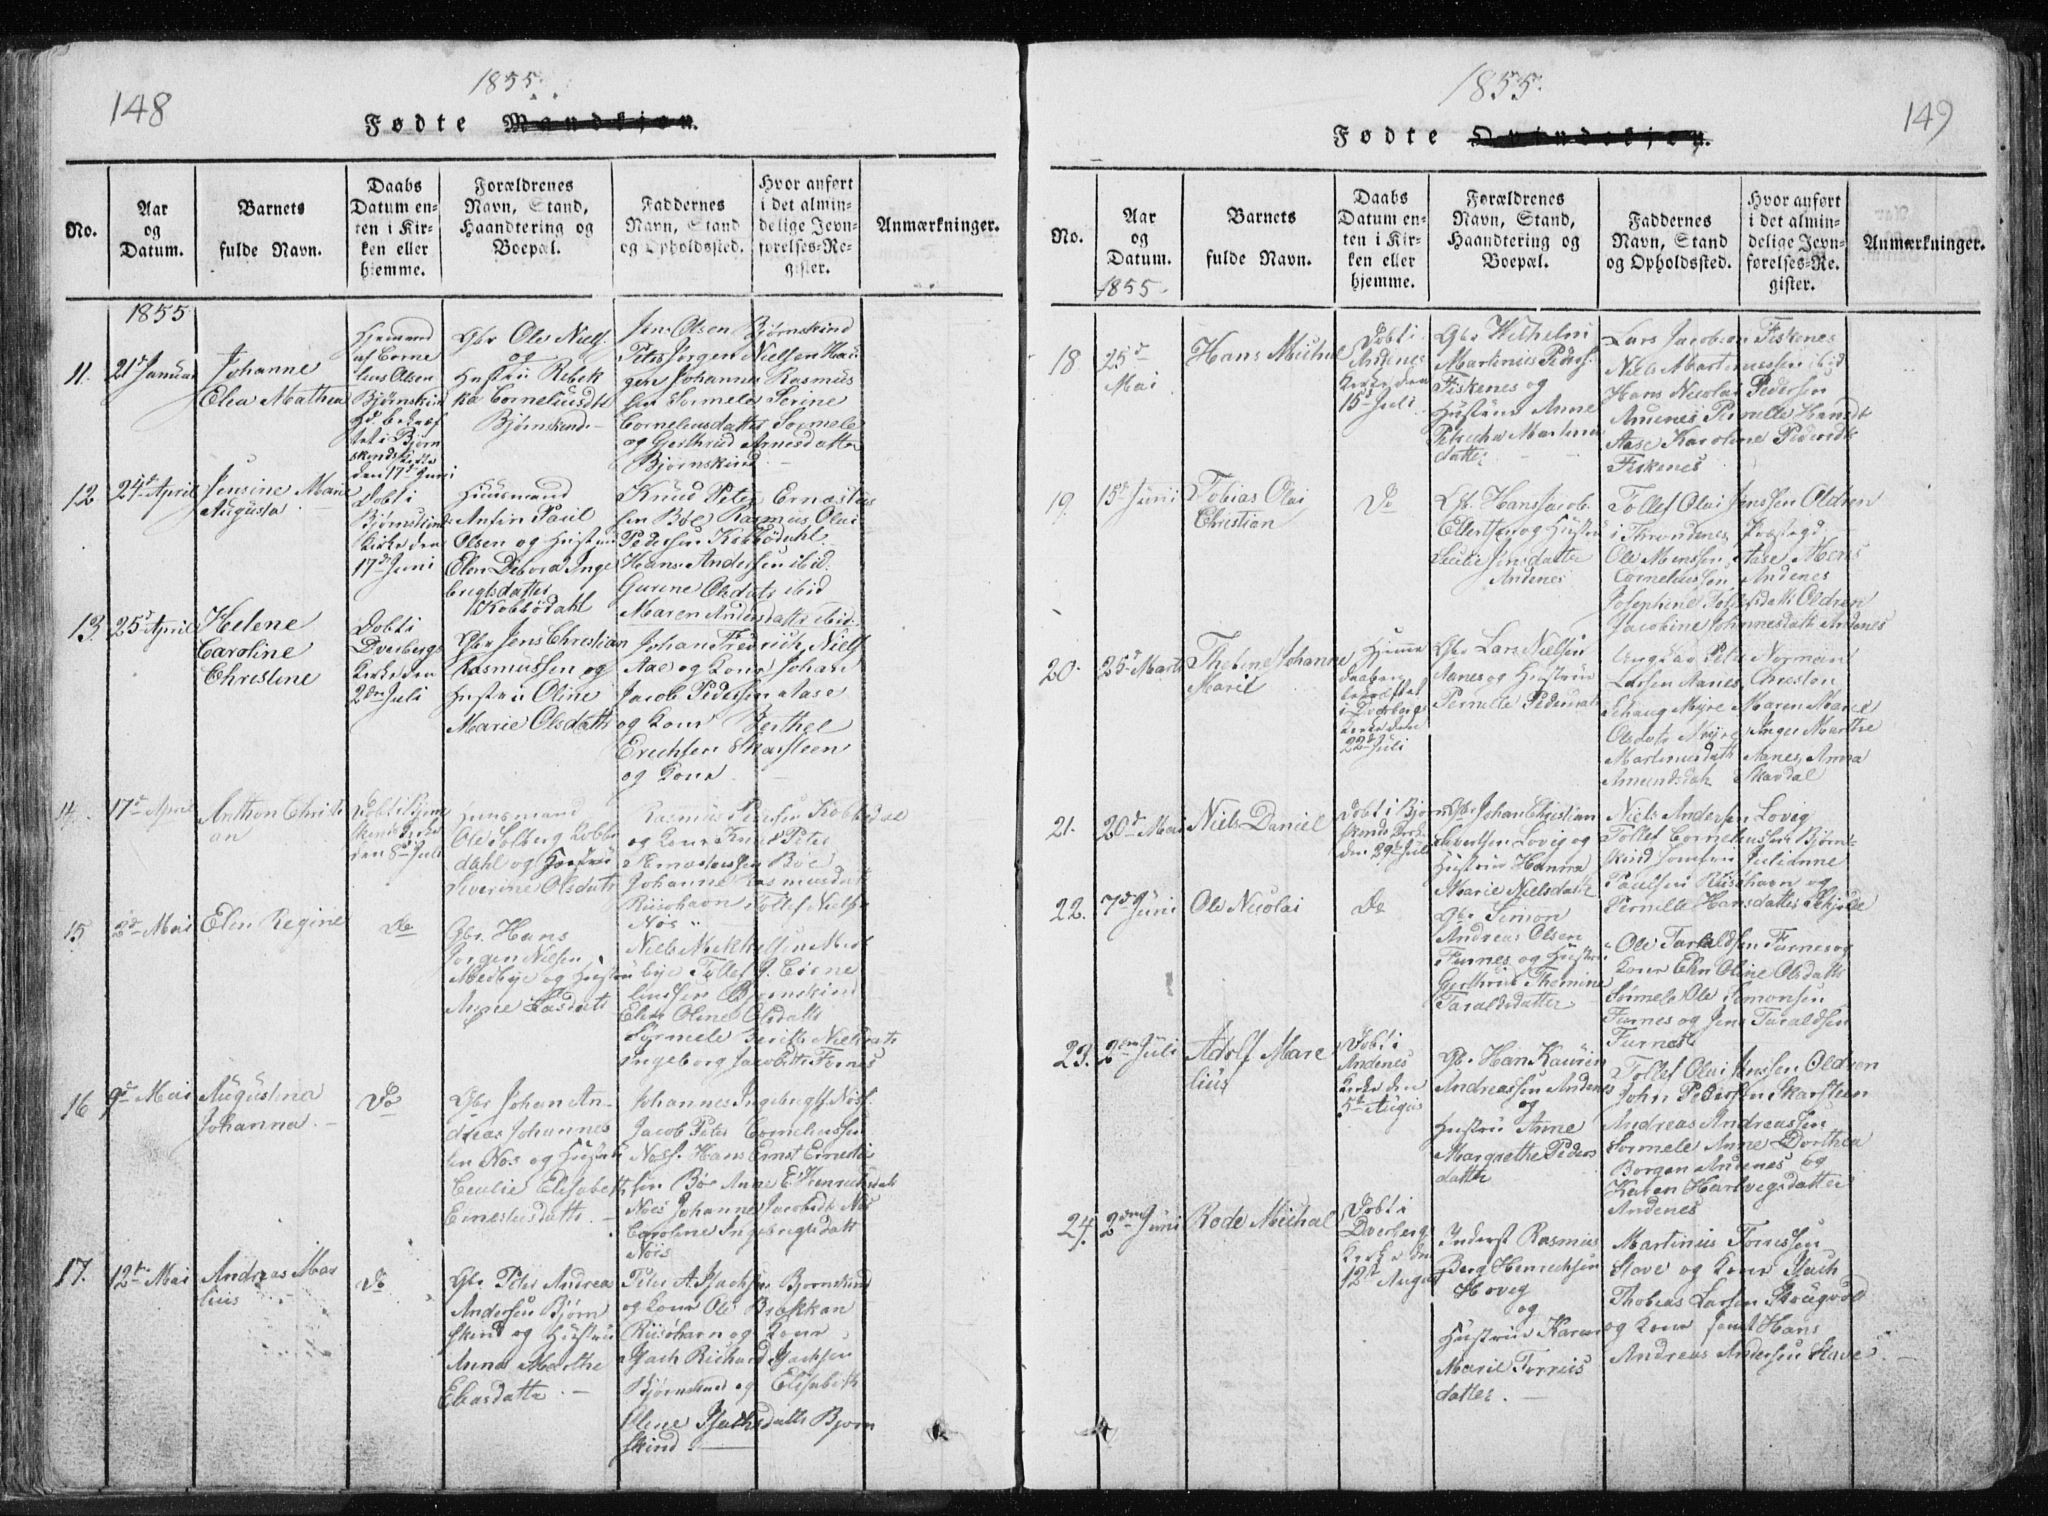 148
1855.
Fødte Mandkjøn.
No.
Aar
og
Datum.
Barnets
fulde Navn.
Daabs
Datum en-
ten i Kir-
ken eller
hjemme.
Forældrenes
Navn, Stand,
Haandtering og
Boepæl.
Faddernes
Navn, Stand
og Opholdssted.
Hvor anført
i det almin-
delige Jevn-
førelses-Re-
gister.
Anmærkninger.
1855
11.
21de Januar
Johanne
Elea Mathea
Hjemmed
af Corne
lius Olsen
Bjørnskin
den 17de Juni
Gbr Ole Niels.
og
Hustru Rebek
ka Corneliusdtr
Bjørnskind
Jens Olsen Bjørnskind
Peter Jørgen Nielsen Hau
gen Johannes Rasmus
sen Sørmele Serine
Corneliusdatter Sørmele
og Gjerthrud Arnesdatter
Bjørnskind. -
12
24de April
Jensine Marie
Augusta.
Døbt i
Bjørnskind
Kirke den
17de Juni
Huusmand
Anfin Paul
Olsen og Hustrue
Elen Debora Inge
brigtsdatter
Kobbedahl
Knud Peter Ernestus
sen Bøe Rasmus Olai
Pedersen Kobbedahl
Hans Andersen ibid.
Gurine Olsdatr ibid
Maren Andersdatter ibid
13.
25de April
Helene
Caroline
Christine
Døbt i
Dverbergs
Kirke den
2den Juli
Gbr Jens Christian
Rasmussen og
Hustru Oline
Marie Olsdatter
Johan Fredrich Niels
Aae og Kone Johan
Jacob Pedersen Aase
og Kone Berthel
Erichsen Skarsteen
og Kone. -
14.
17de April
Anthon Christi
an
Døbt i Bjørn
skinds Kirke
den 8de Juli
Huusmand
Ole Solberg Kobbe
dahl og Hustru
Severine Olsdatr
Rasmus Pedersen Kobbedal
og Kone Knud Peter
Ernestussen Bøe
Johanne Rasmusdatr
Riisøhavn Tollef Nielsen
Nøs
15
2de Mai
Elen Regine
do
Gbr. Hans
Jørgen Nielsen
Medbye og Hustru
Anne Easdatr
Niels Mikkelsen Med
bye Tollef J. Corne
liussen Bjørnskind
Elen Oline Olsdatter
Sørmele Berith Nielsdatr
Ingeborg Jacobdtr Fornes
16
9de Mai
Augustina
Johanna. -
Do
Gbr Johan An-
dreas Johannes
sen Nøs og Hustru
Cecilie Elisabeth
Ernestusdatter. -
Johannes Ingebrigts. Nøss.
Jacob Peter Corneliussen
Nøss. Hans Ernst Ernestus
sen Bøe Anne E. Henrichsdatr
Nøes Johanne Jacobsdtr Nøs
Caroline Ingebrigtsdatt
Nøis
17.
12te Mai
Andreas Mar
lius
do
Gbr Peter Andrea
Andersen Bjørn
skind og Hustru
Anna Marthe
Eliasdatter. -
Peter A. Isachsen Bjørnskind
og Kone Ole Brekkan
Riisøhavn og Kone
Isach Richard Isachsen
Bjørnskind og Elisabeth
Elene Isachsdatter Bjørn
skind.
149
1855.
Fødte Qvindekjøn.
No.
Aar
og
Datum.
1855.
Barnets
fulde Navn.
Daabs
Datum en-
ten i Kir-
ken eller
hjemme.
Forældrenes
Navn, Stand,
Haandtering og
Boepæl.
Faddernes
Navn, Stand
og Opholdssted.
Hvor anført
i det almin-
delige Jevn-
førelses-Re-
gister.
Anmærkninger.
18
25de
Mai
Hans Michal
Døbt i
Andenes
Kirke den
15de Juli
Gbr Wilhelm
Martinus Peders.
Fiskenes og
Hustrue Anne
Petrecha Martinus
datter
Lars Jacobsen Fiskenes
Niels Martinussen ibid
Hans Nicolai Pedersen
Andenes Pernelle Hansdtr
Aase Karoline Pedersdtr
Fiskenes
19.
15de Junii
Tobias Olai
Christian
Do
Gb. Hans Jacob
Ellertsen og Hustru
Cecilie Jensdatter
Andenes
Tollef Olai Jenssen Oldren
i Throndenes Præstegd
Ole Monssen Aase Mons
Corneliussen Andenes
Josephine Tollefsdatt Oldren
Jacobine Johannesdatt Andenes
20.
25de Marts
Theline Johanne
Marie
Hjemme
daaben
bekræftet
i Dverberg
Kirke den
22de Juli
Gbr Lars Nielsen
Aanes og Hustrue
Pernelle Pedersdatr
Ungkar Peter Norman
Larsen Aanes Christen
Schaug Myre Maren Marie
Olsdatr Myre Inger Marthe
Martinusdatter Aanes Anna
Amundsdatr Skavdal
21.
20de Mai
Niels Daniel
Døbt i Bjø
skinds Kirke
den 29de Juli
Gbr Johan Christian
Sivertsen Lovig og
Hustrue Hanna
Marie Nielsdattr
Niels Andersen Lovig
Tollef Corneliussen Bjørn
skind Jomfru Julianne
Paulsen Riisøhavn og
Pernelle Hansdatter Schjolde
22.
7de Juni
Ole Nicolai
do
Gbr Simon
Andreas Olsen
Furnes og Hustru
Gjerthrue Themine
Taraldsdatter
Ole Taraldsen Furnes og
Kone Elen Oline Olsdatter
Sørmele Ole Simonsen
Furnes og Jens Taraldsen
Furnes
23.
2den Juli
Adolf Mare
lius
Døbt i
Andenes
Kirke den
5te Augus
Gb. Hans Kaurin
Andreassen Andenes
og
Hustru Anne
Margrethe Peders
datter
Tollef Olai Jenssen Oldren
John Pedersen Skarsteen
Andreas Andreassen
Sørmele Anne Dorthea
Borgen Andenes og
Karen Hartvigsdatter
Andenes
24.
2den Juni
Rode Michal
Døbt i
Dverberg
Kirke den
12te August
Inderst Rasmus
Berg Henrechsen
Hoveg
og
Hustrue Karen
Marie Torreis
datter. -
Martinus Torressen
Stave og Kone Isach
Thobias Larsen Skougvold
og Kone samt Hans
Andreas Andersen Stave